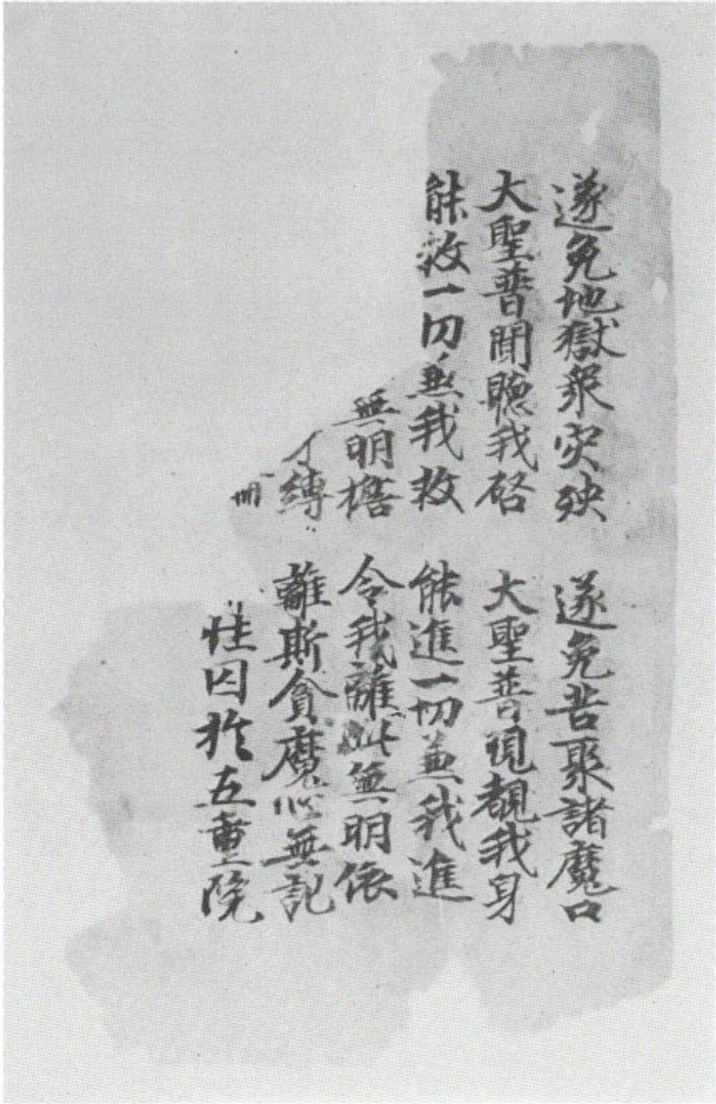 遂免地獄衆灾殃　遂免苦聚諸魔口
大聖普聞聽我啓　大聖普現覩我身
能救一切兼我救　能進一切兼我進
無明　令我離此無明依
縛　離斯貪魔心無記
性囚於五重院